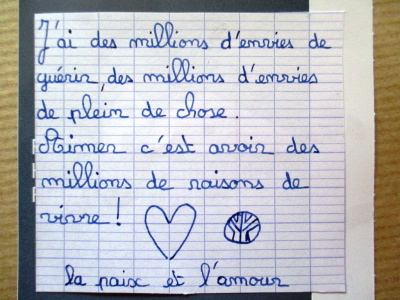 J'ai des millions d'envies de
guérir, des millions d'envies
de plein de chose.
Aimer c'est avoir des
millions de raisons de
vivre !
la paix et l'amour